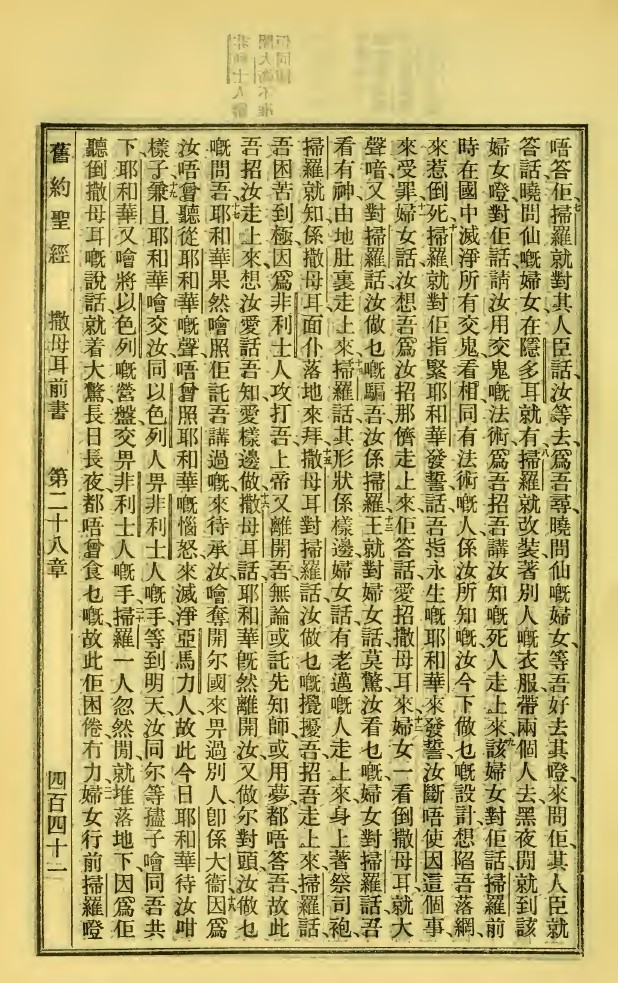 唔答佢、掃羅就對其人臣話、汝等去爲吾尋曉問仙嘅婦女、等吾好去其噔、來問佢、其人臣就
答話、曉問仙嘅婦女、在隱多耳就有、掃羅就改裝、著別人嘅衣服、帶兩個人去、黑夜間就到該
婦女噔、對佢話、請汝用交鬼嘅法術、爲吾招吾講汝知嘅死人走上來、該婦女對佢話、掃羅前
時在國中滅淨所有交鬼看相、同有法術嘅人、係汝所知嘅、汝今下做乜嘅設計、想陷吾落網、
來惹倒死、掃羅就對佢指緊耶和華發誓話、吾指永生嘅耶和華來發誓、汝斷唔使因這個事
來受罪、婦女話、汝想吾爲汝招那儕走上來、佢答話、愛招撒母耳來、婦女一看倒撒母耳、就大
聲喑、又對掃羅話、汝做乜嘅騙吾、汝係掃羅、王就對婦女話、莫驚、汝看乜嘅、婦女對掃羅話、吾
看有神由地肚裏走上來、掃羅話、其形狀係樣邊、婦女話、有老邁嘅人走上來、身上著祭司袍、
掃羅就知係撒母耳、面仆落地來拜、撒母耳對掃羅話、汝做乜嘅攪擾吾、招吾走上來、掃羅話、
吾困苦到極、因爲非利士人攻打吾、上帝又離開吾、無論或託先知師、或用夢、都唔答吾、故此
吾招汝走上來、想汝愛話吾知愛樣邊做、撒母耳話、耶和華旣然離開汝、又做尔對頭、汝做乜
嘅問吾、耶和華果然噲照佢託吾講過嘅來待承汝、噲奪開尔國、來畀過別人、卽係大衞、因爲
汝唔曾聽從耶和華嘅聲、唔曾照耶和華嘅惱怒來滅淨亞馬力人、故此今日耶和華待汝咁
樣子、兼且耶和華噲交汝同以色列人畀非利士人嘅手、等到明天、汝同尔等孻子噲同吾共
下、耶和華又噲將以色列嘅營盤交畀非利士人嘅手、掃羅一人忽然間就堆落地下、因爲佢
聽倒撒母耳嘅說話、就着大驚、長日長夜都唔曾食乜嘅、故此佢困倦冇力、婦女行前掃羅噔、
舊約聖經 撒母耳前書 第二十八章 四百四十一